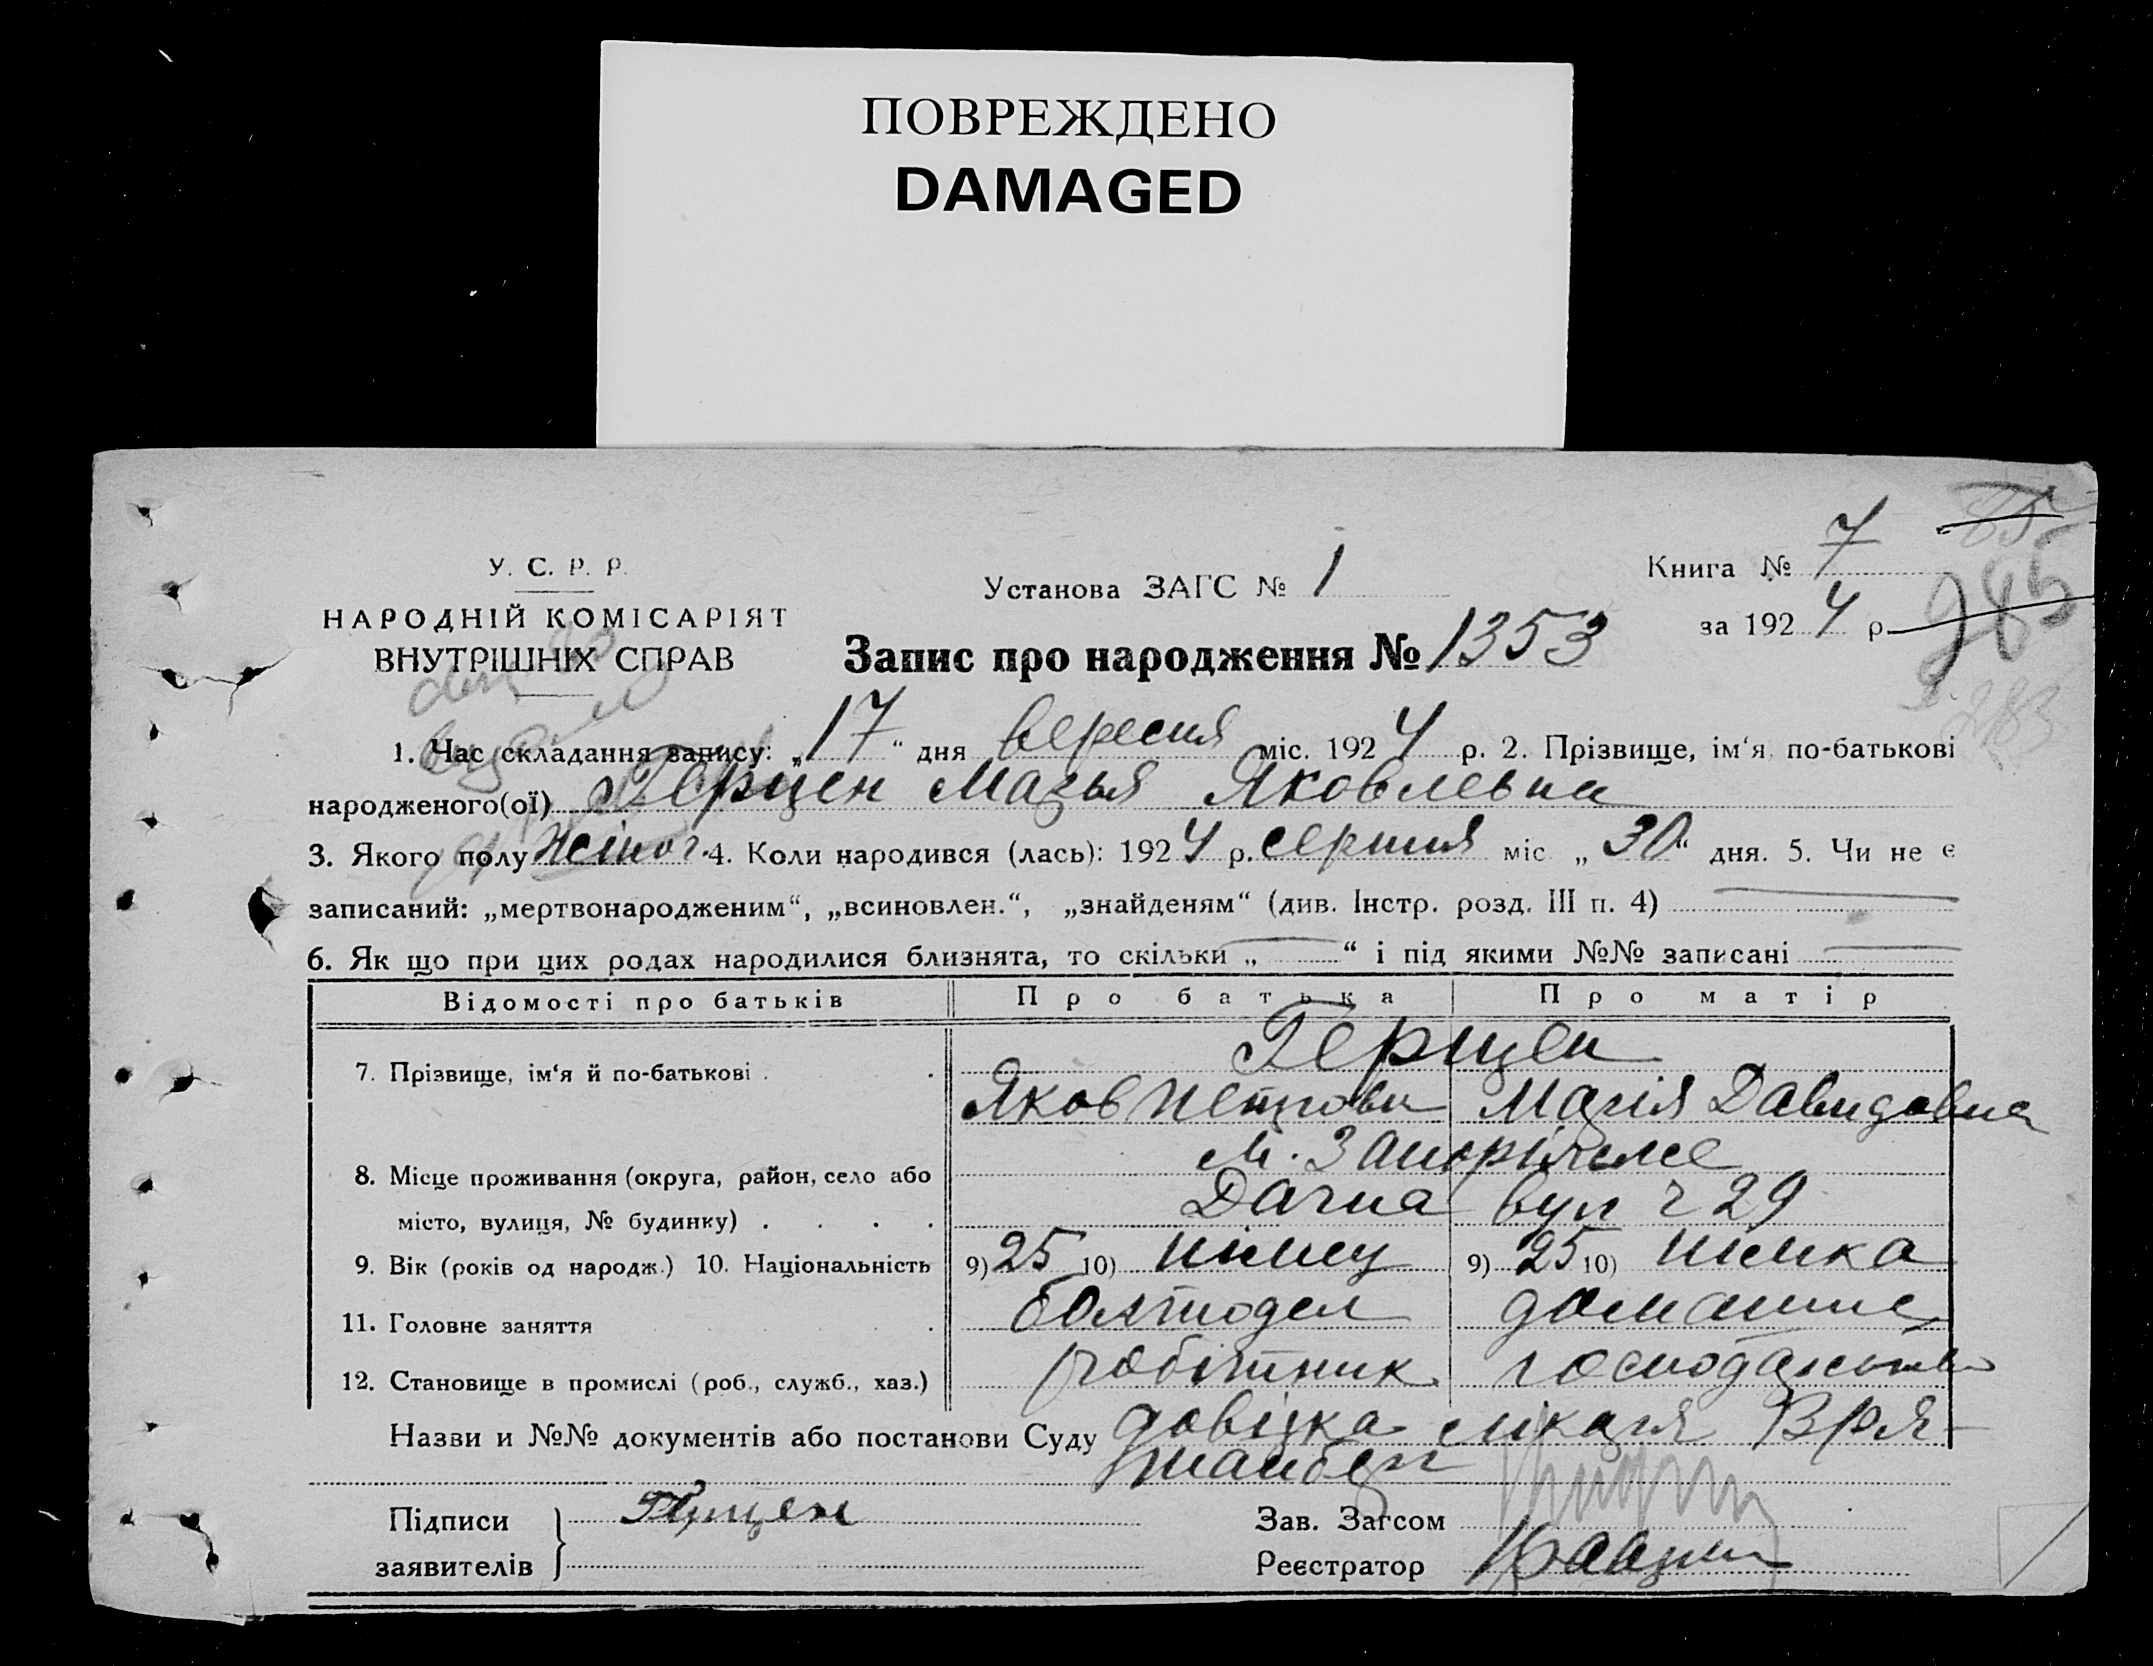 ПОВРЕЖДЕНО
DAMAGED
У. С. Р. Р.
НАРОДНІЙ КОМІСАРІЯТ
ВНУТРІШНІХ СПРАВ
Установа ЗАГС № 1
Книга № 7
за 1924 р.
285
283
Запис про народження № 1353
1. Час складання запису: „17“ дня вересня міс. 1924 р. 2. Прізвище, ім‘я по-батькові
народженого(ої) Герцен Марья Яковлевна
3. Якого полу жіноч. 4. Коли народився (лась): 1924 р. серпня міс „30“ дня. 5. Чи не є
записаний: „мертвонародженим“, „всиновлен.“, „знайденям“ (див. Інстр. розд. III п. 4)
6. Як що при цих родах народилися близнята, то скільки „ “ і під якими №№ записані
Відомості про батьків Про батька Про матір
Герцен
7. Прізвище, ім‘я й по-батькові . .
Яков Петрови Марія Давидовна
м. Запоріжже
8. Місце проживання (округа, район, село або
місто, вулиця, № будинку) . . . . Дачна вул ч 29
9. Вік (років од народж.) 10. Національність 9) 25 10) німец 9) 25 10) німка
11. Головне заняття . болтодел домашнє
12. Становище в промислі (роб., служб., хаз.) робітник господарство
Назви и №№ документів або постанови Суду довідка лікаря
Підписи
заявителів
Герцен
Зав. Загсом
Реєстратор